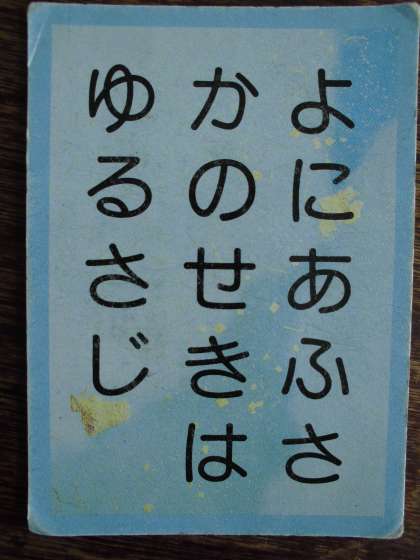 よにあふさ
かのせきは
ゆるさじ